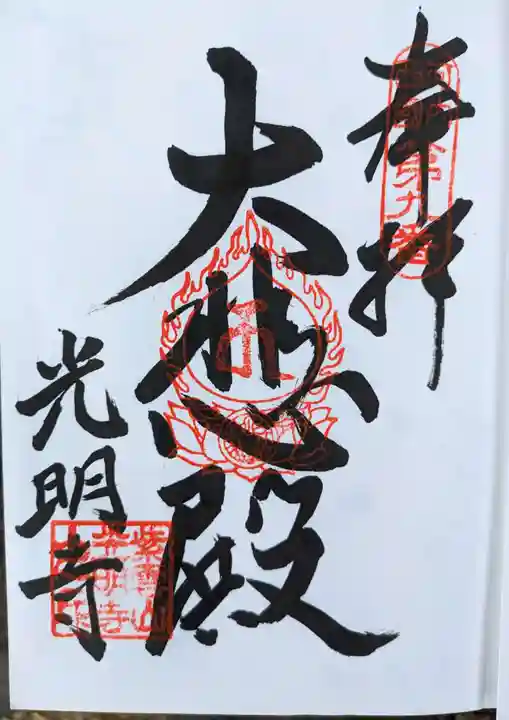 奉拝
第九番
大悲殿
光明寺
紫雲山
光明寺